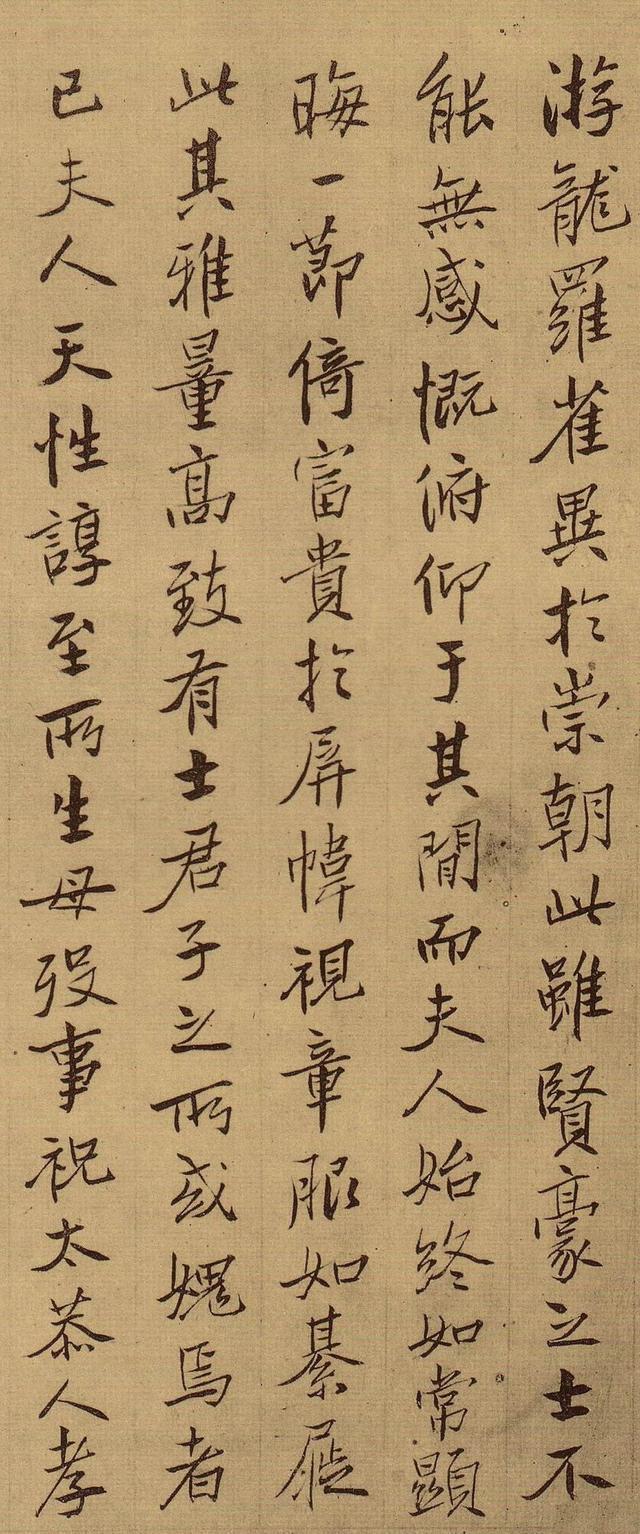 游龍羅雀異於崇朝此雖賢豪之士不
能無感慨俯仰于其間而夫人始終如常顯
晦一節倚富貴於屏幃視章服如綦屣
此其雅量高致有士君子之所或媿焉者
已夫人天性諄至所生母歿事祝太恭人孝